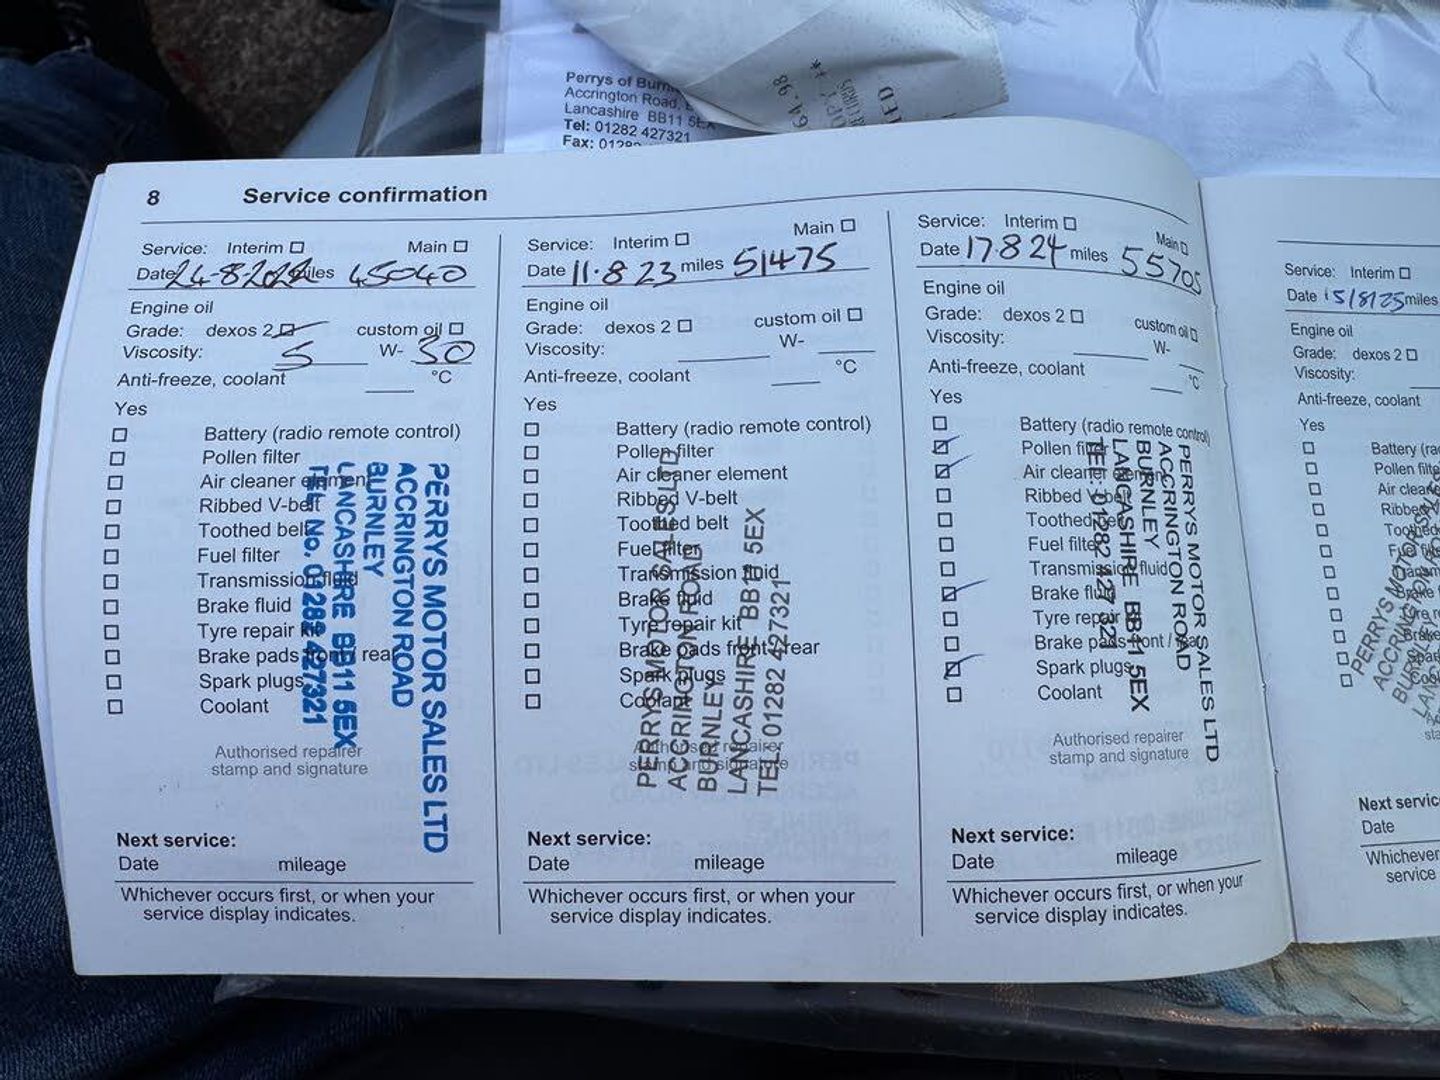 Perrys of Burn
Accrington Road,
Lancashire BB11 5EX
Tel: 01282 427321
Fax: 01282
64.98
8 Service confirmation
Service: Interim ☐ Main ☐
Date 24-8-2022 miles 45040
Engine oil
Grade: dexos 2 ☐ custom oil ☐
Viscosity: 5 W- 30
Anti-freeze, coolant °C
Yes
☐ Battery (radio remote control)
☐ Pollen filter
☐ Air cleaner element
☐ Ribbed V-belt
☐ Toothed belt
☐ Fuel filter
☐ Transmission fluid
☐ Brake fluid
☐ Tyre repair kit
☐ Brake pads front / rear
☐ Spark plugs
☐ Coolant
Authorised repairer
stamp and signature
PERRYS MOTOR SALES LTD
ACCRINGTON ROAD
BURNLEY
LANCASHIRE BB11 5EX
TEL No. 01282 427321
Next service:
Date mileage
Whichever occurs first, or when your
service display indicates.
Service: Interim ☐ Main ☐
Date 11.8.23 miles 51475
Engine oil
Grade: dexos 2 ☐ custom oil ☐
Viscosity: W-
Anti-freeze, coolant °C
Yes
☐ Battery (radio remote control)
☐ Pollen filter
☐ Air cleaner element
☐ Ribbed V-belt
☐ Toothed belt
☐ Fuel filter
☐ Transmission fluid
☐ Brake fluid
☐ Tyre repair kit
☐ Brake pads front / rear
☐ Spark plugs
☐ Coolant
Authorised repairer
stamp and signature
PERRYS MOTOR SALES LTD
ACCRINGTON ROAD
BURNLEY
LANCASHIRE BB11 5EX
TEL: 01282 427321
Next service:
Date mileage
Whichever occurs first, or when your
service display indicates.
Service: Interim ☐ Main ☐
Date 17 8 24 miles 55705
Engine oil
Grade: dexos 2 ☐ custom oil ☐
Viscosity: W-
Anti-freeze, coolant °C
Yes
☐ Battery (radio remote control)
☑ Pollen filter
☑ Air cleaner element
☐ Ribbed V-belt
☐ Toothed belt
☐ Fuel filter
☐ Transmission fluid
☑ Brake fluid
☐ Tyre repair kit
☐ Brake pads front / rear
☑ Spark plugs
☐ Coolant
Authorised repairer
stamp and signature
PERRYS MOTOR SALES LTD
ACCRINGTON ROAD
BURNLEY
LANCASHIRE BB11 5EX
TEL: 01282 427 321
Next service:
Date mileage
Whichever occurs first, or when your
service display indicates.
Service: Interim ☐
Date 15/8/25 miles
Engine oil
Grade: dexos 2 ☐
Viscosity:
Anti-freeze, coolant
Yes
☐ Battery (ra
☐ Pollen filte
☐ Air cleane
☐ Ribbed V
☐ Toothed
☐ Fuel filt
☐ Transm
☐ Brake f
☐ Tyre re
☐ Brake
☐ Spar
☐ Cool
PERRYS MOTOR
ACCRING
BURN
LAN
Next servic
Date
Whichever
service